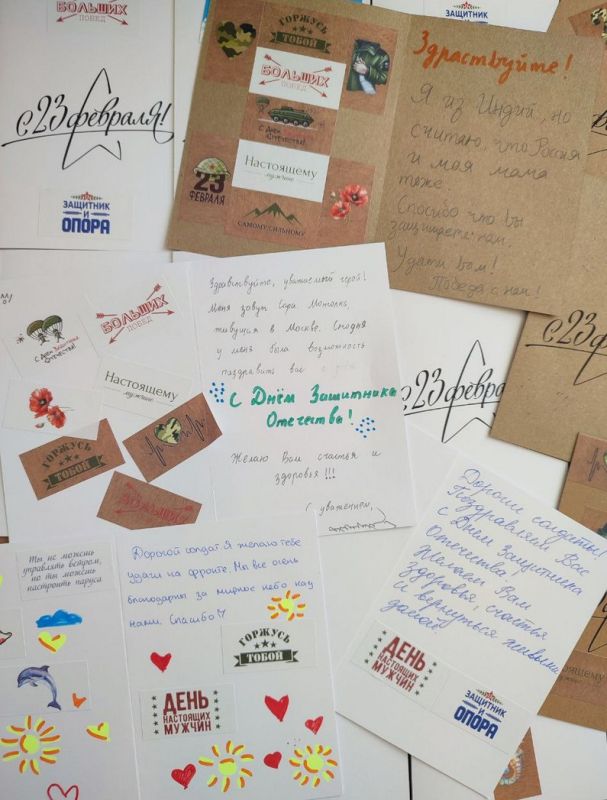 БОЛЬШИХ
ПОБЕД
С 23 февраля!
ЗАЩИТНИК
И
ОПОРА
ГОРЖУСЬ
ТОБОЙ
БОЛЬШИХ
ПОБЕД
С Днём
Отечества!
Настоящему
мужчине
23
ФЕВРАЛЯ
САМОМУ СИЛЬНОМУ
ЗАЩИТНИК
И
Здраствуйте!
Я из Индий, но
считаю, что Россия
и моя мама
тоже.
Спосибо что вы
защищаете нам.
Удачи вам!
Победа с нам!
БОЛЬШИХ
ПОБЕД
С Днём Защитника
Отечества!
Настоящему
мужчине
ГОРЖУСЬ
ТОБОЙ
БОЛЬШИХ
Здравствуйте, уважаемый герой!
Меня зовут Сара
живущая в Москве. Сегодня
у меня была возможность
поздравить вас с
С Днём Защитника
Отечества!
Желаю Вам счастья и
здоровья!!!
С уважением,
С 23 февра
С 23 февра
Ты не можешь
управлять ветром,
но ты можешь
настроить паруса
Дорогой солдат. Я желаю тебе
удачи на фронте. Мы все очень
благодарны за мирное небо над
нами. Спасибо
ГОРЖУСЬ
ТОБОЙ
ДЕНЬ
НАСТОЯЩИХ
МУЖЧИН
Дорогие солдаты!
Поздравляем Вас
с Днём Защитника
Отечества!
Желаем Вам
здоровья, счастья
и вернуться живыми
домой!
ДЕНЬ
НАСТОЯЩИХ
МУЖЧИН
ЗАЩИТНИК
И
ОПОРА